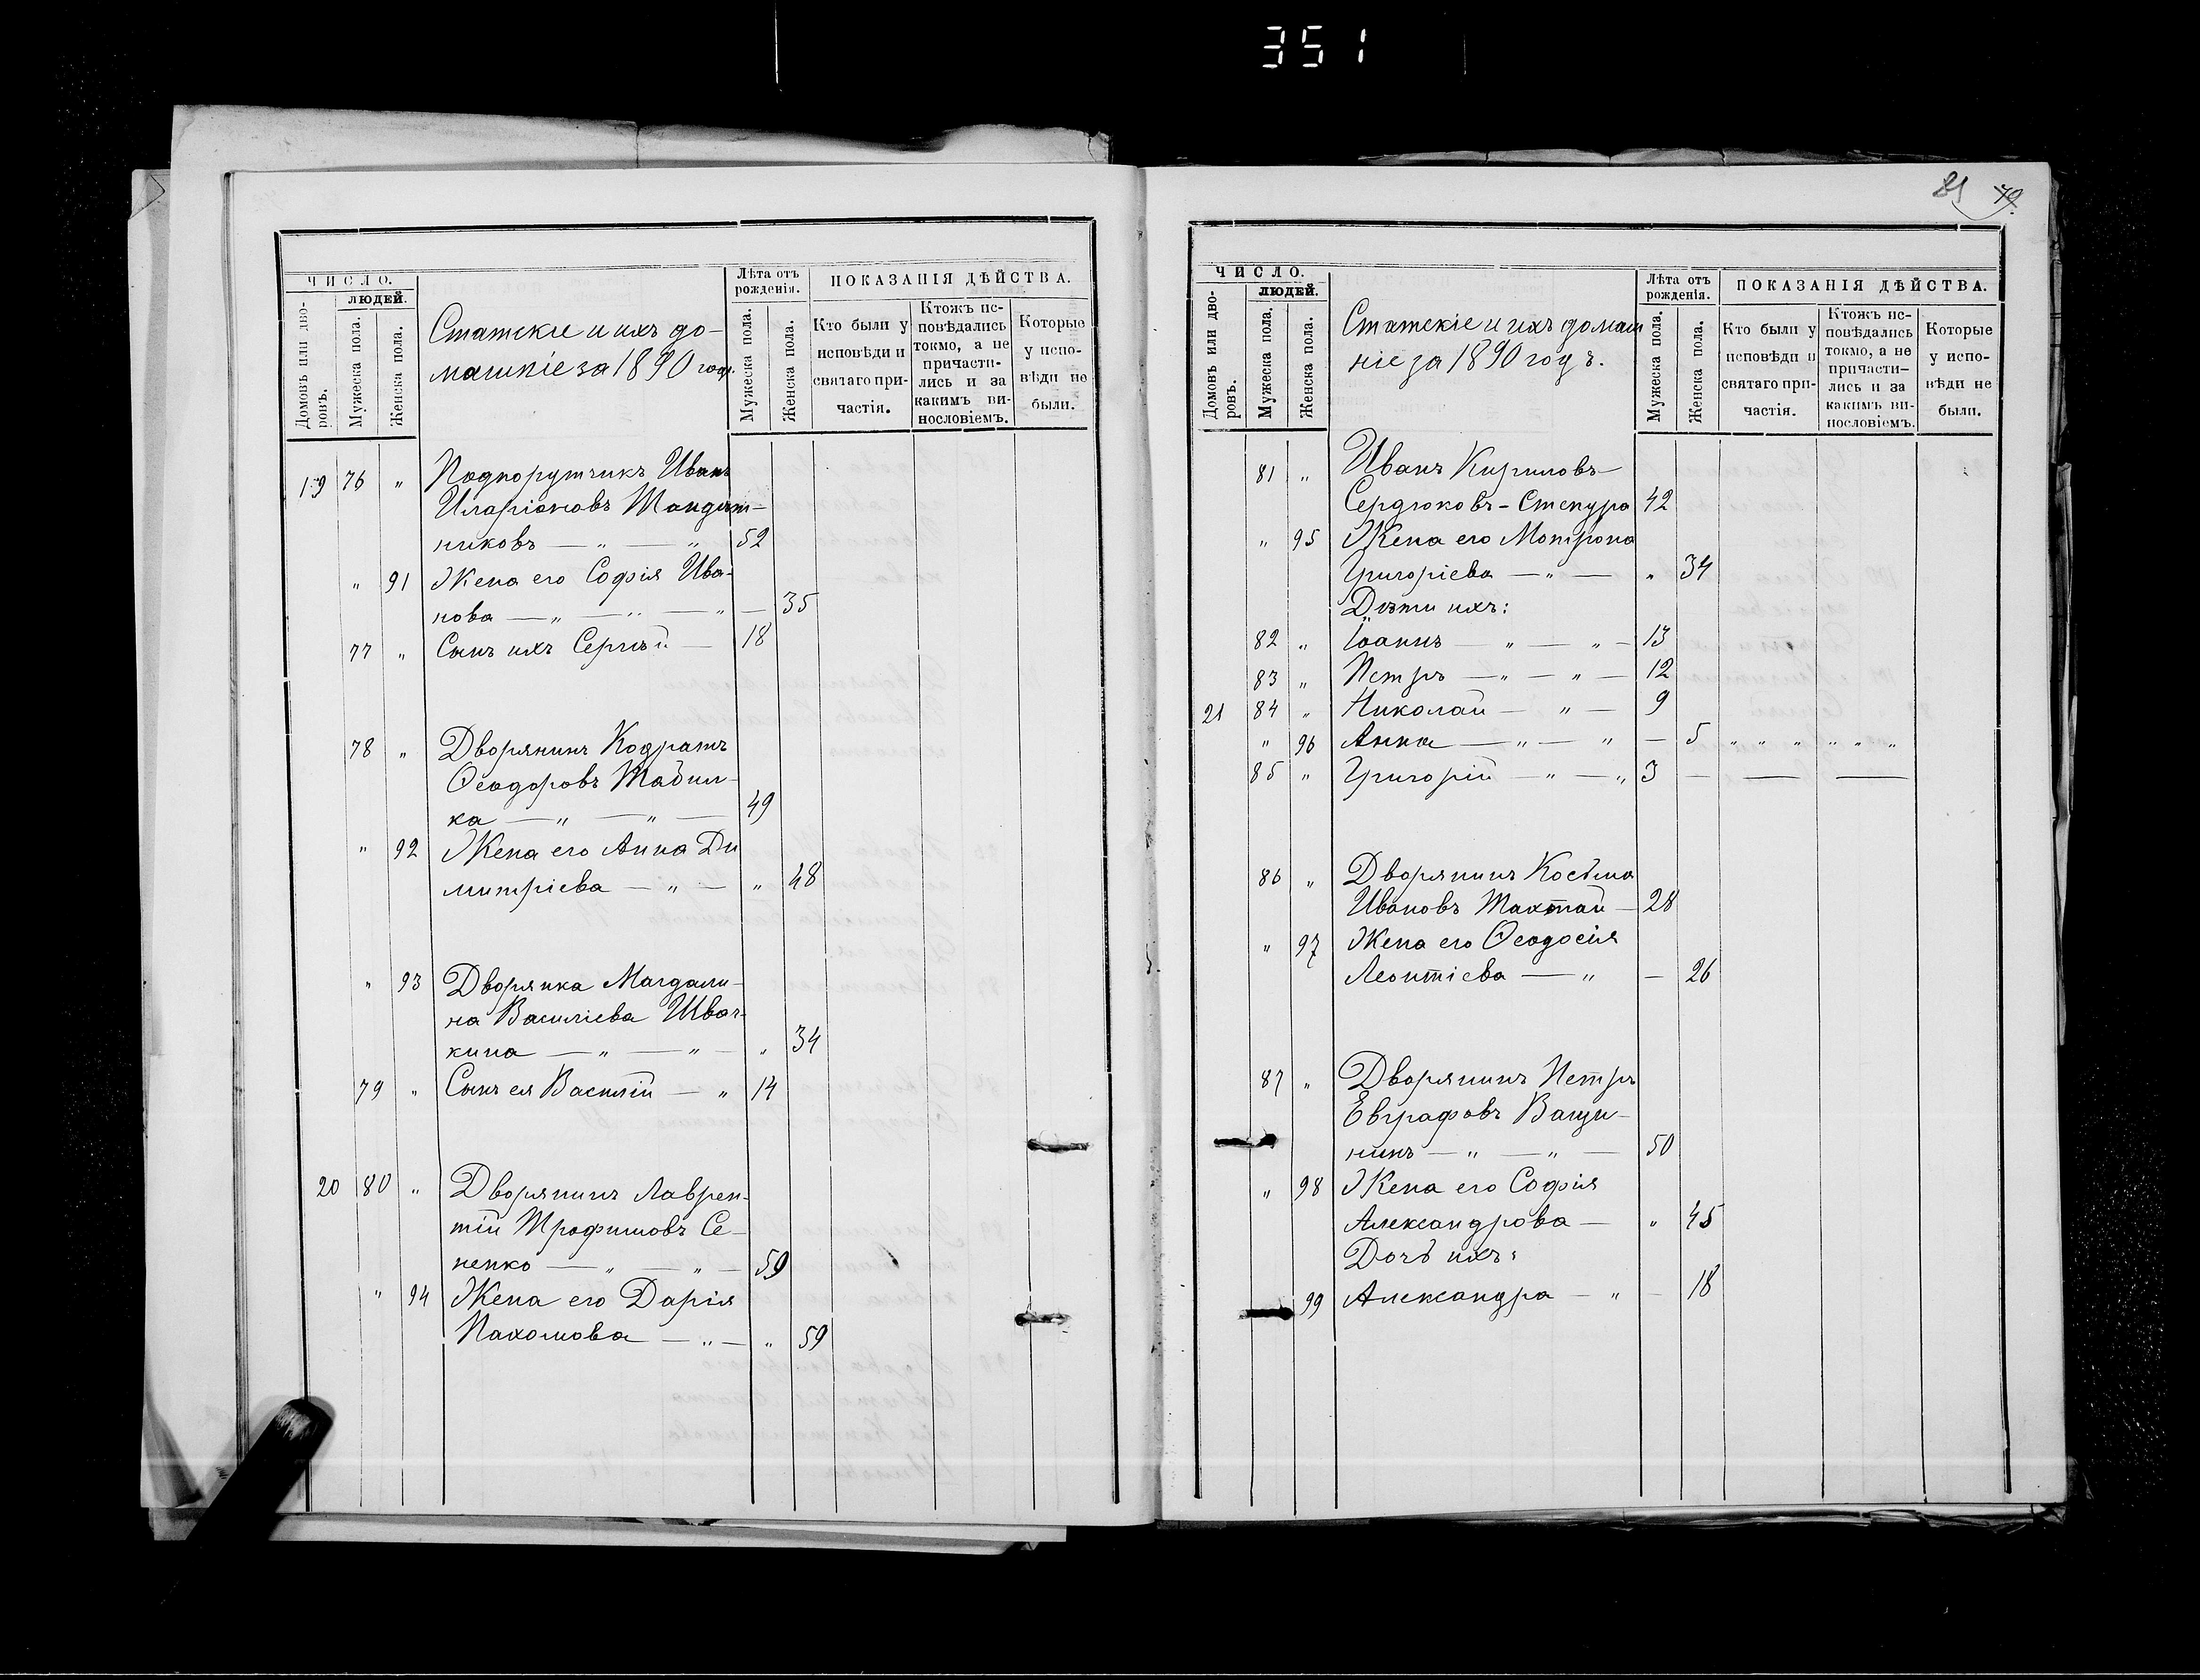 351
ЧИСЛО.
Домовъ или дво-
ровъ.
людей.
Мужеска пола.
Женска пола.
Статскіе и ихъ до-
машніе за 1890 годъ.
Лѣта отъ
рожденія.
Мужеска пола.
Женска пола.
ПОКАЗАНІЯ ДѢЙСТВА.
Кто были у
исповѣди и
святаго при-
частія.
Ктожъ ис-
повѣдались
токмо, а не
причасти-
лись и за
какимъ ви-
нословіемъ.
Которые
у испо-
вѣди не
были.
19 76 " Подпорутчикъ Иванъ
Иларіоновъ
никовъ — " — " 52
" 91 Жена его Софія Ива-
нова — " — " — " — 35
77 " Сынъ ихъ Сергѣй — 18
78 " Дворянинъ Кодратъ
Ѳеодоровъ
ка — " — " — 49
" 92 Жена его Анна Ди
митріева — " — " 48
" 93 Дворянка Магдали-
на Василіева Швач-
кина — " — " — " 34
79 " Сынъ ея Василій — " 14
20 80 " Дворянинъ Лаврен-
тій Трофимовъ Се-
ненко — " — " — 59
" 94 Жена его Дарія
Пахомова — " — " 59
81 79.
ЧИСЛО.
Домовъ или дво-
ровъ.
людей.
Мужеска пола.
Женска пола.
Статскіе и ихъ домаш
ніе за 1890 годъ.
Лѣта отъ
рожденія.
Мужеска пола.
Женска пола.
ПОКАЗАНІЯ ДѢЙСТВА.
Кто были у
исповѣди и
святаго при-
частія.
Ктожъ ис-
повѣдались
токмо, а не
причасти-
лись и за
какимъ ви-
нословіемъ.
Которые
у испо-
вѣди не
были.
81 " Иванъ Кириловъ
Сердюковъ-Стенура 42
" 95 Жена его Мотрона
Григоріева — " — " 34
Дѣти ихъ:
82 " Іоаннъ — " — " — 13
83 " Петръ — " — " — 12
21 84 " Николай — " — 9
" 96 Анна — " — " — 5 " " " " " "
85 " Григорій — " — " 3 — — —
86 " Дворянинъ Косьма
Ивановъ Тахтай — 28
" 97 Жена его Ѳеодосія
Леонтіева — " — 26
87 " Дворянинъ Петръ
Евграфовъ Ващи-
нинъ — " — " — 50
" 98 Жена его Софія
Александрова — " 45
Дочь ихъ:
99 Александра — " — 18